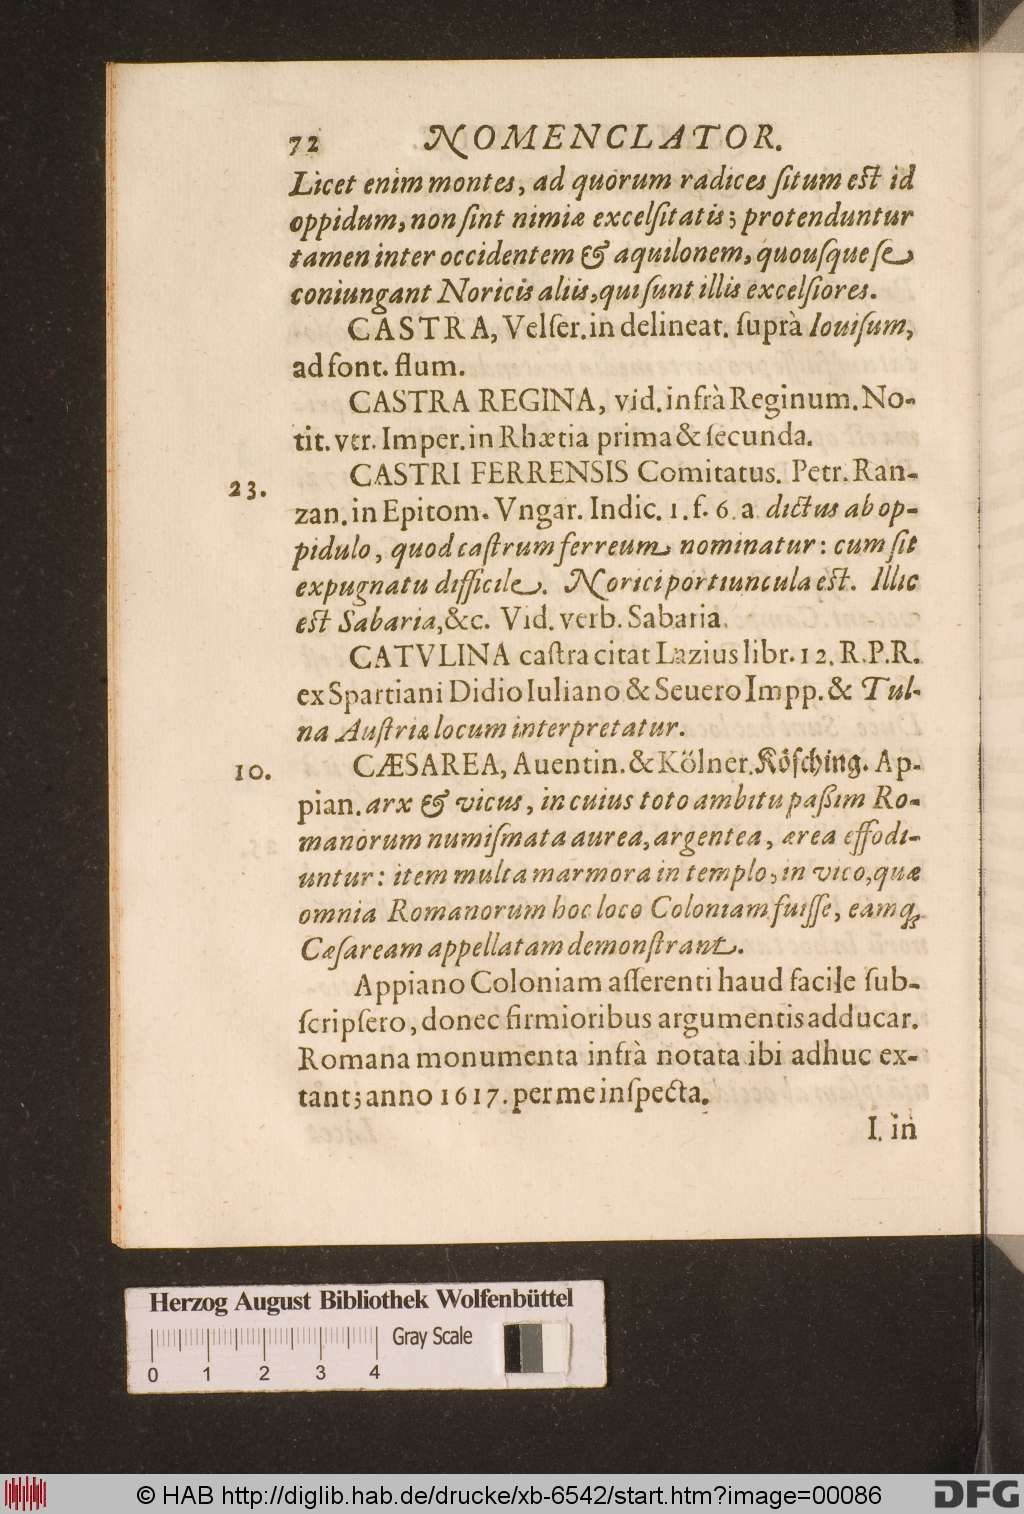 72 NOMENCLATOR.
Licet enim montes, ad quorum radices ſitum eſt id
oppidum, non ſint nimiæ excelſitatis; protenduntur
tamen inter occidentem & aquilonem, quouſque ſe
coniungant Noricis aliis, qui ſunt illis excelſiores.
CASTRA, Velſer. in delineat. ſuprà Iouiſum,
ad font. flum.
CASTRA REGINA, vid. infrà Reginum. No-
tit. vtr. Imper. in Rhætia prima & ſecunda.
23.
CASTRI FERRENSIS Comitatus. Petr. Ran-
zan. in Epitom. Vngar. Indic. 1. f. 6. a dictus ab op-
pidulo, quod caſtrum ferreum nominatur: cum ſit
expugnatu difficile. Norici portiuncula eſt. Illic
eſt Sabaria, &c. Vid. verb. Sabaria.
CATVLINA caſtra citat Lazius libr. 12. R.P.R.
ex Spartiani Didio Iuliano & Seuero Impp. & Tul-
na Auſtriæ locum interpretatur.
10.
CÆSAREA, Auentin. & Kölner. Köſching. Ap-
pian. arx & vicus, in cuius toto ambitu paßim Ro-
manorum numiſmata aurea, argentea, ærea effodi-
untur: item multa marmora in templo, in vico, quæ
omnia Romanorum hoc loco Coloniam fuiſſe, eamq́;
Cæſaream appellatam demonſtrant.
Appiano Coloniam aſſerenti haud facile ſub-
ſcripſero, donec firmioribus argumentis adducar.
Romana monumenta infrà notata ibi adhuc ex-
tant; anno 1617. per me inſpecta.
I. in
Herzog August Bibliothek Wolfenbüttel
Gray Scale
0 1 2 3 4
© HAB http://diglib.hab.de/drucke/xb-6542/start.htm?image=00086
DFG